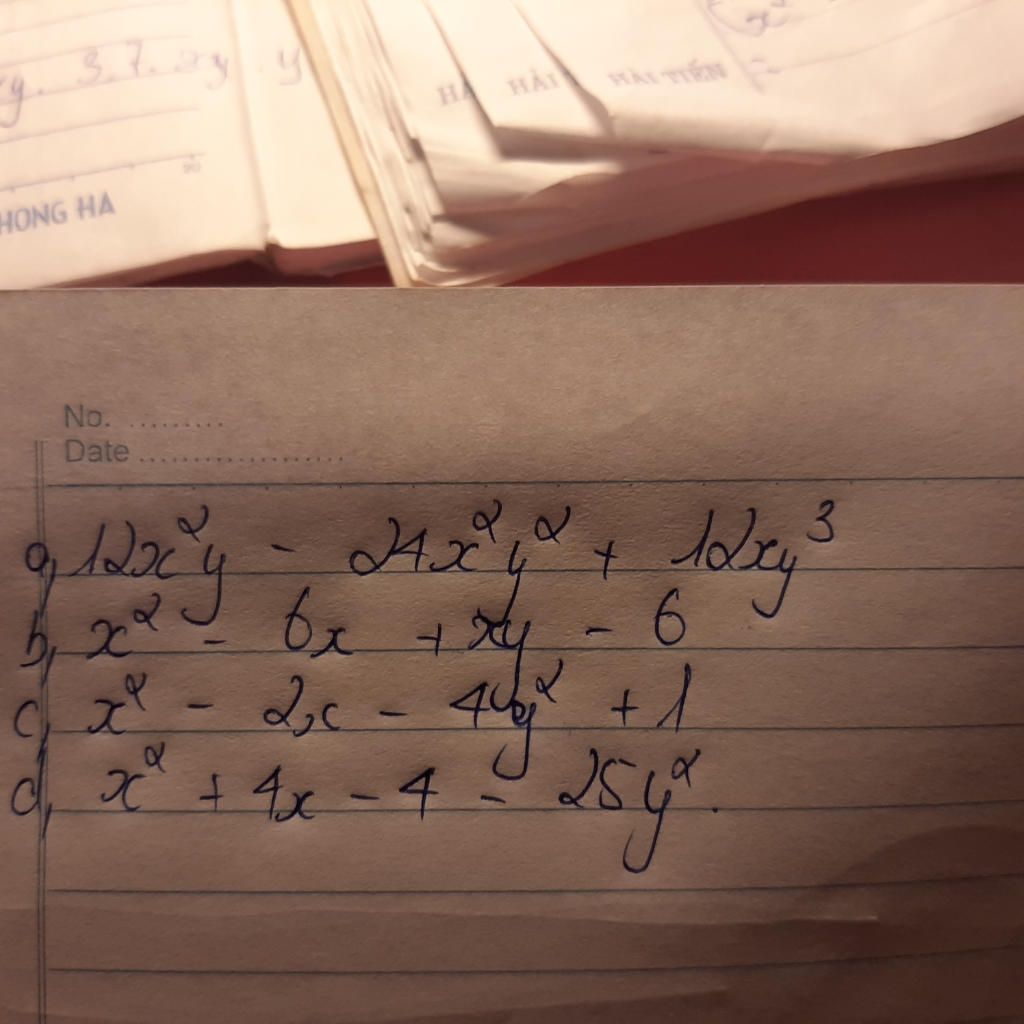 xy. 3.7. xy . y
x²
=
HẢI HẢI TIẾN
20
HONG HA
No. ..........
Date ....................
a, 12x²y - 24x²y² + 12xy³
b, x² - 6x + xy - 6
c, x² - 2x - 4y² + 1
d, x² + 4x - 4 - 25y².